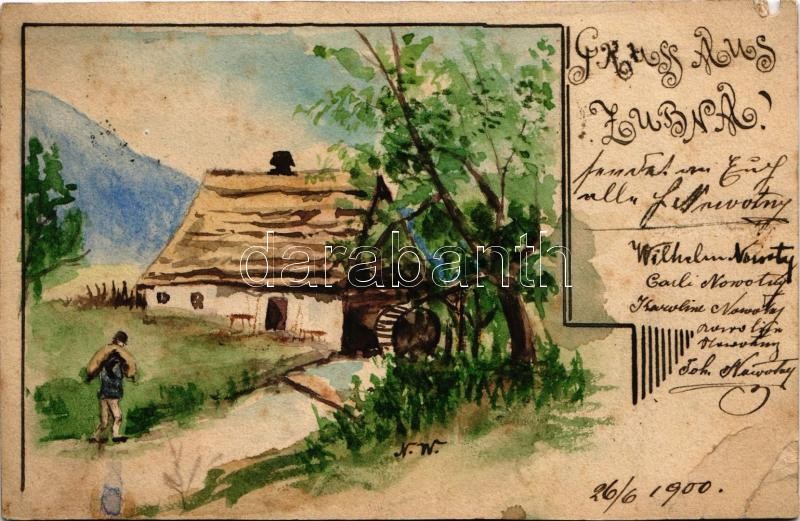 GRUSS AUS
ZUBNÁ!
sendet an Euch
alle J. Nowotny
Wilhelm Nowotny
Carli Nowotny
Karoline Nowotny
Nowotny
Joh. Nowotny
darabanth
N. W.
26/6 1900.